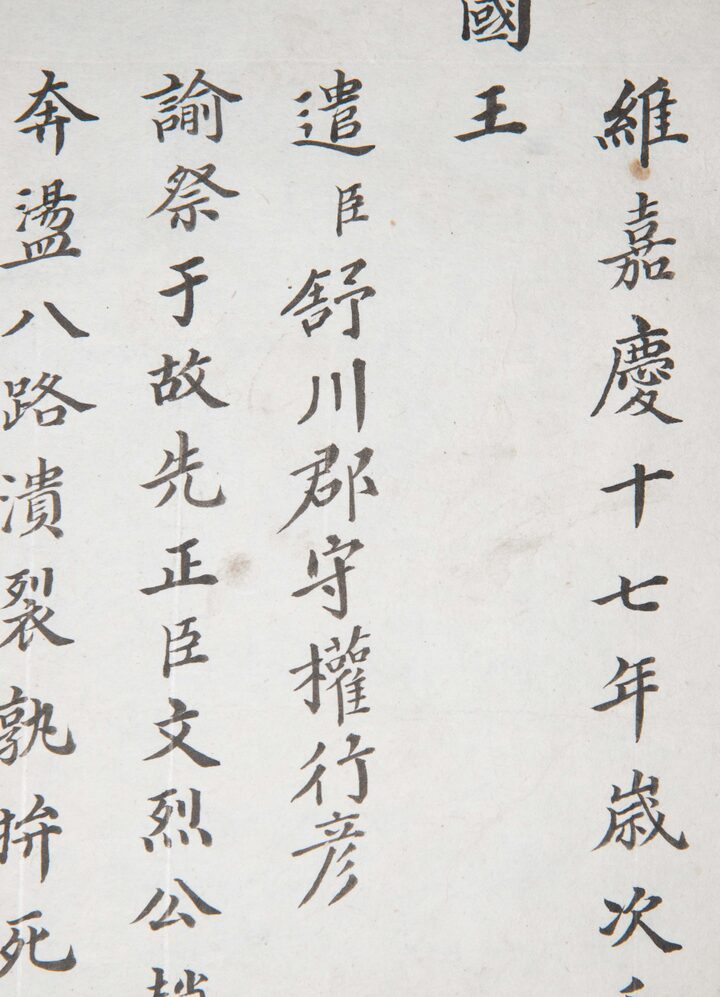 維嘉慶十七年歲次
國王
遣臣舒川郡守權行彦
諭祭于故先正臣文烈公趙
奔盪八路潰裂孰拚死